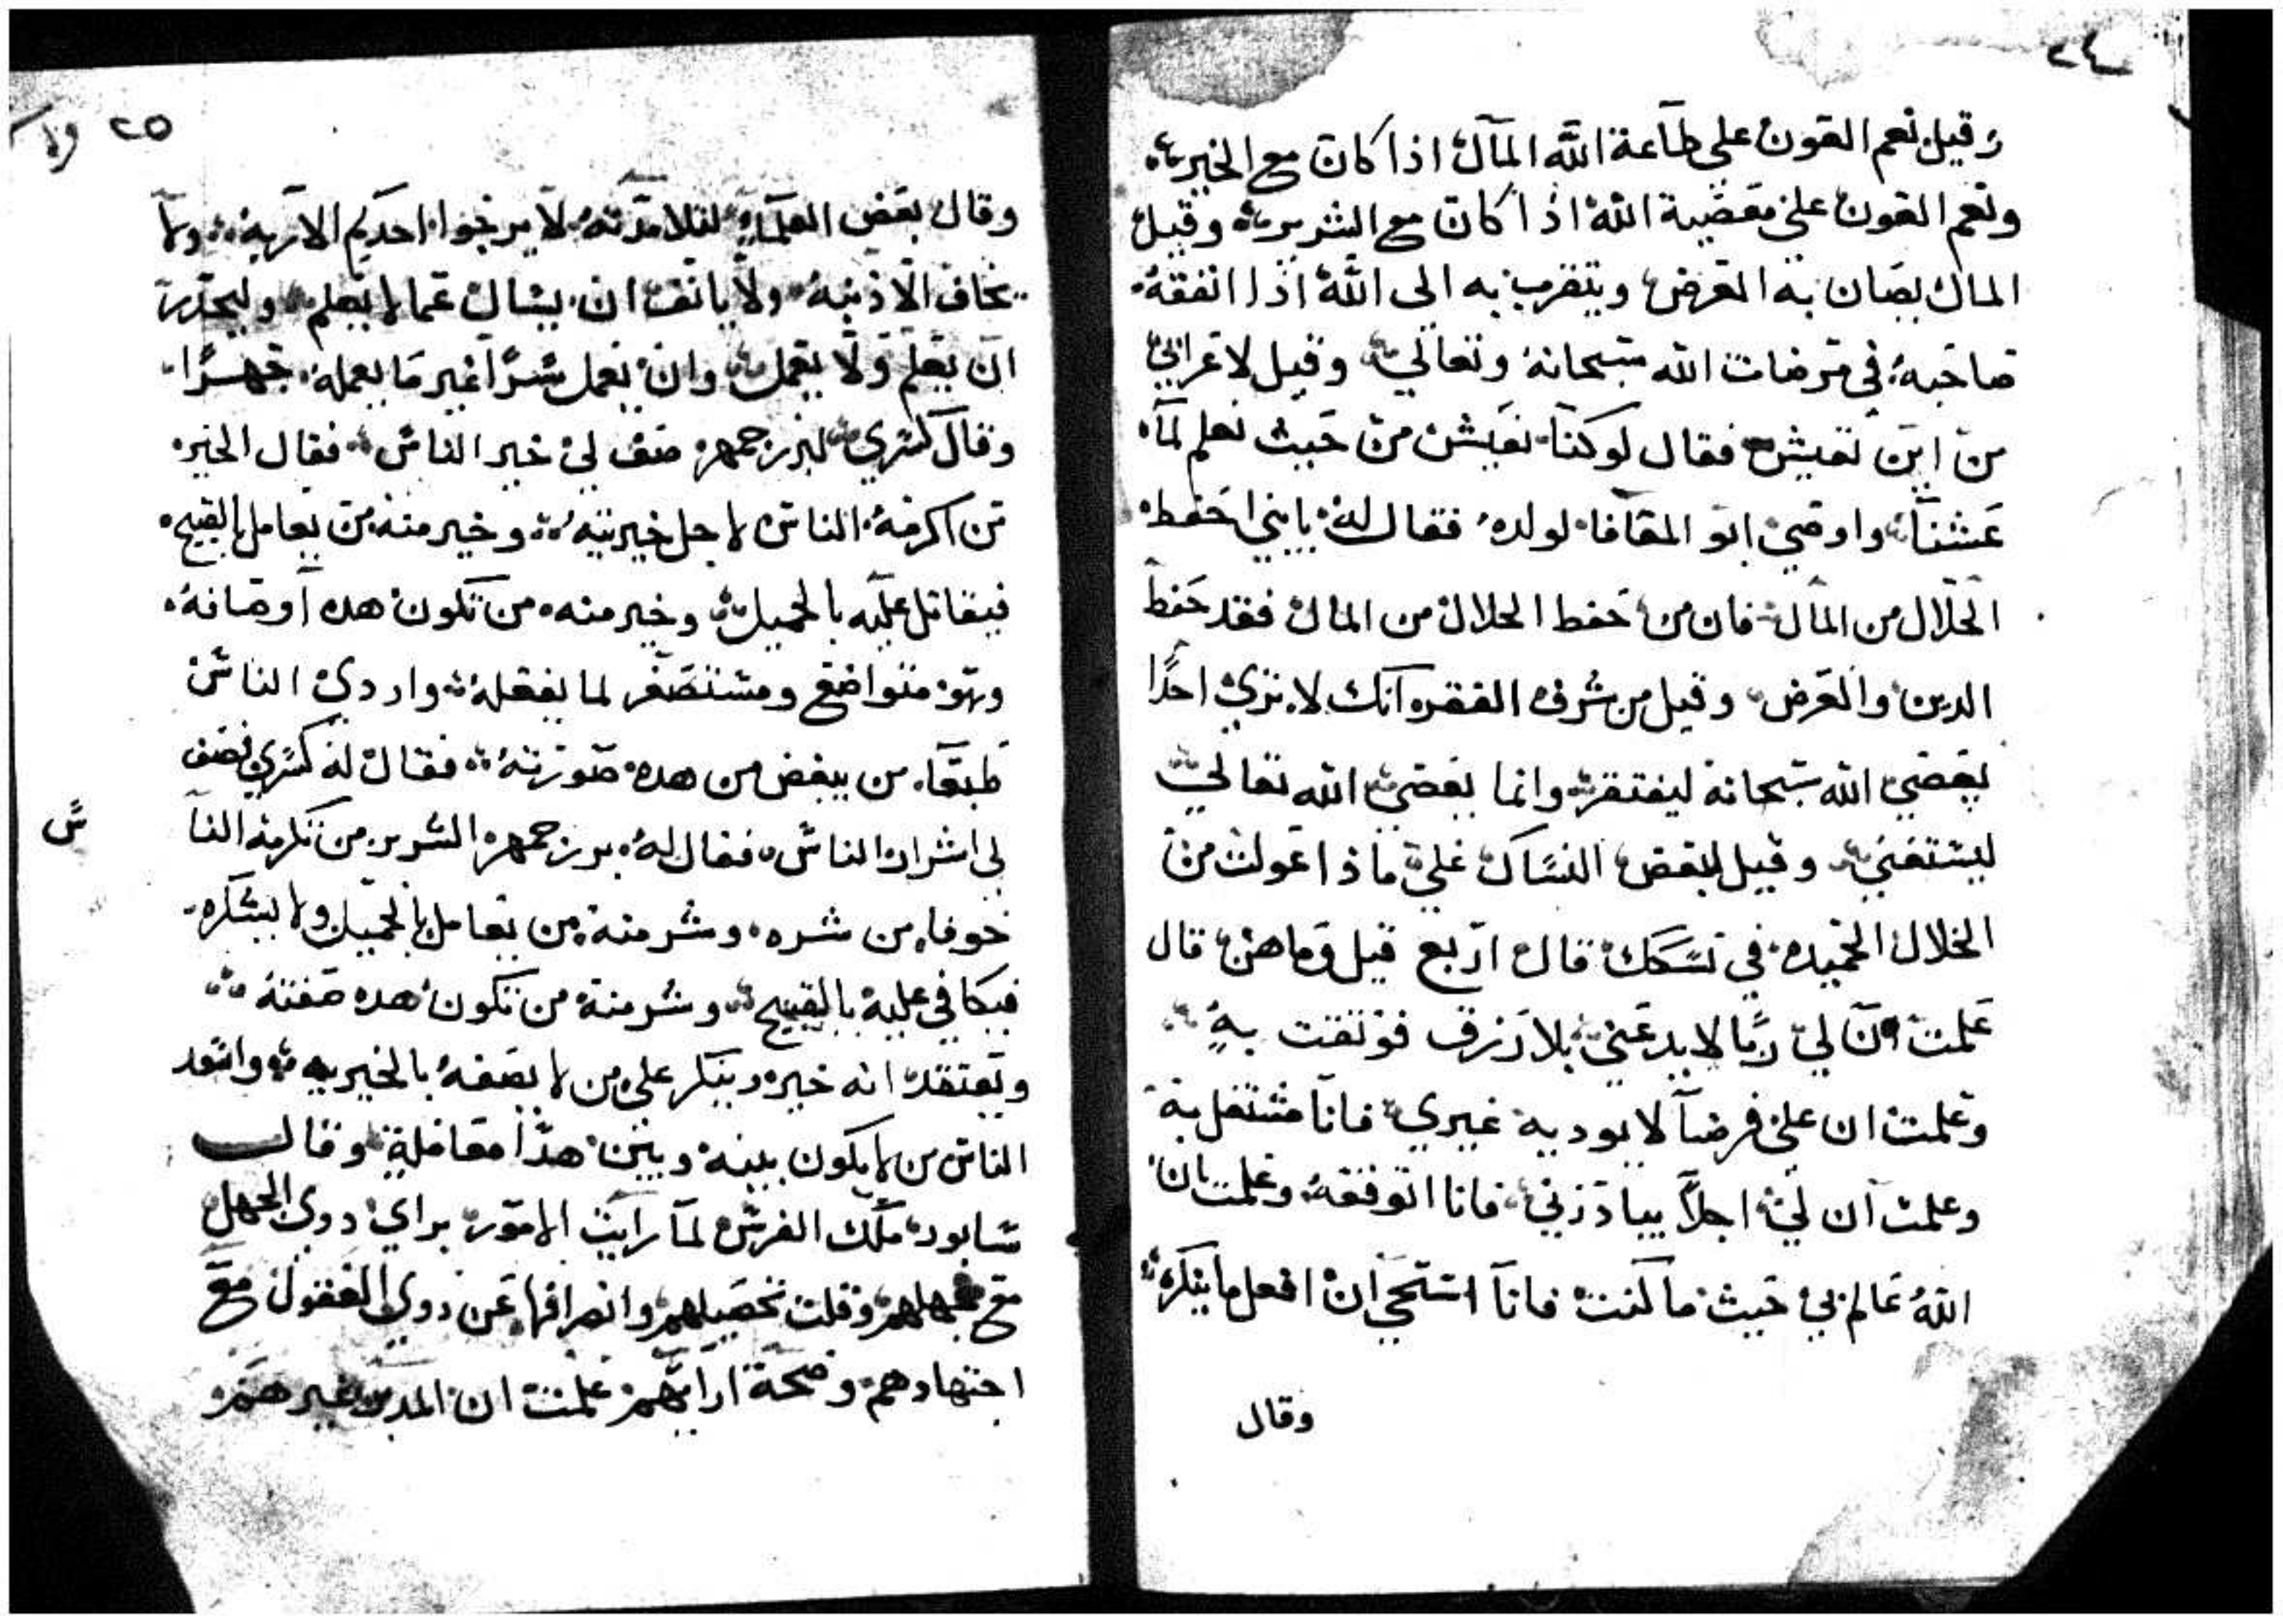 ٢٤
وقيل نعم العون علي طاعة الله المال اذا كان مع الخير
ونعم العون علي معصية الله اذا كان مع الشرير وقيل
المال يصان به العرض ويتقرب به الى الله اذا انفقه
صاحبه في مرضات الله سبحانه وتعالي وقيل لاعرابي
من اين تعيش فقال لو كنا نعيش من حيث نعلم لما
عشنا واوصي ابو المعافا لولده فقال له يا بني احفط
الحلال من المال فان من حفط الحلال من المال فقد حفط
الدين والعرض وقيل من شرف الفقر انك لا تري احدًا
يعصي الله سبحانه ليفتقر وانما يعصي الله تعالي
ليستغني وقيل لبعض النساك علي ماذا عولت من
الخلال الحميده في نسكك قال اربع قيل وما هن قال
علمت ان لي ربًا لا بدعني بلا رزق فوتقت به
وعلمت ان علي فرضاً لا يوديه غيري فانا مشتغل به
وعلمت ان لي اجلاً يبادرني فانا اتوقعه وعلمت ان
الله عالم بي حيث ما كنت فانا استحي ان افعل ما ينكره
وقال
٢٥
وقال بعض العلماء لتلامذته لا يرجوا احدكم الا ربه ولا
يخاف الا ذنبه ولا يانف ان يسال عما لا يعلم وليحذر
ان يعلم ولا يعمل وان يعمل سرًا غير ما يعمله جهرًا
وقال كسري لبزرجمهر صف لي خير الناس فقال الخير
من اكرمه الناس لاجل خيريته وخير منه من يعامل بالقبيح
فيقابل عليه بالجميل وخير منه من تكون هده اوصافه
وهو متواضع ومستصغر لما يفعله واردي الناس
طبعاً من يبغض من هده صورته فقال له كسري فصف
لي اشرار الناس فقال له بزرجمهر الشرير من تكرمه النا
س
خوفا من شره وشر منه من يعامل بالجميل ولا يشكره
فيكافي عليه بالقبيح وشر منه من تكون هده صفته
ويعتقد انه خير وينكر علي من لا يصفه بالخيريه واسعد
الناس من لا يكون بينه وبين هدا معامله وقال
سابور ملك الفرس لما رايت الامور براي دوي الجهل
مع جهلهم وقلت تحصيلهم وانصرافها عن دوي العقول مع
اجتهادهم وصحة ارايهم علمت ان المدبر غيرهم